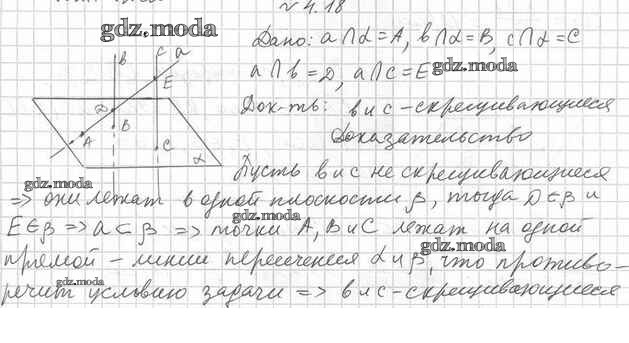 № 4.18
gdz.moda
Дано: a∩α=A, b∩α=B, c∩α=C
a∩b=D, a∩c=E gdz.moda
Док-ть: b и c – скрещивающиеся
Доказательство
B c a
E
D
B
A C
α
Пусть b и c не скрещивающиеся
gdz.moda
=> они лежат в одной плоскости β, тогда D∈β и
gdz.moda
E∈β => a⊂β => точки A, B и C лежат на одной
gdz.moda
прямой – линии пересечения α и β, что противо-
gdz.moda
речит условию задачи => b и c – скрещивающиеся